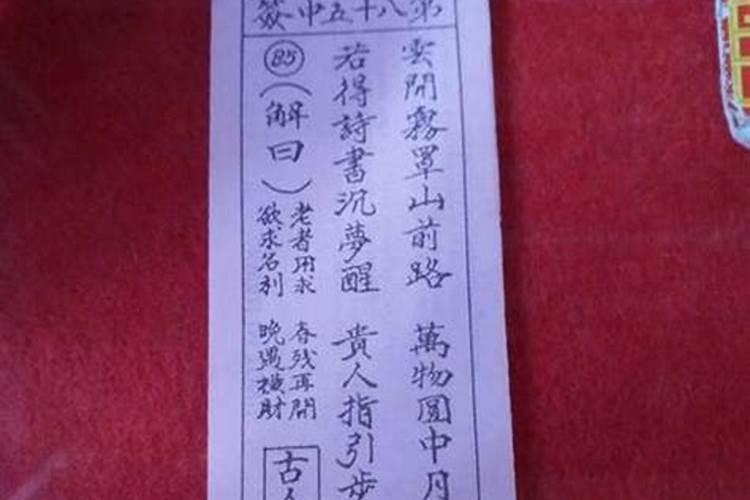 第八十五中簽
雲開霧罩山前路 萬物圓中月
若得詩書沉夢醒 貴人指引步
85（解曰）
老者用求 春残再開
欲求名利 晚遇橫財
古人